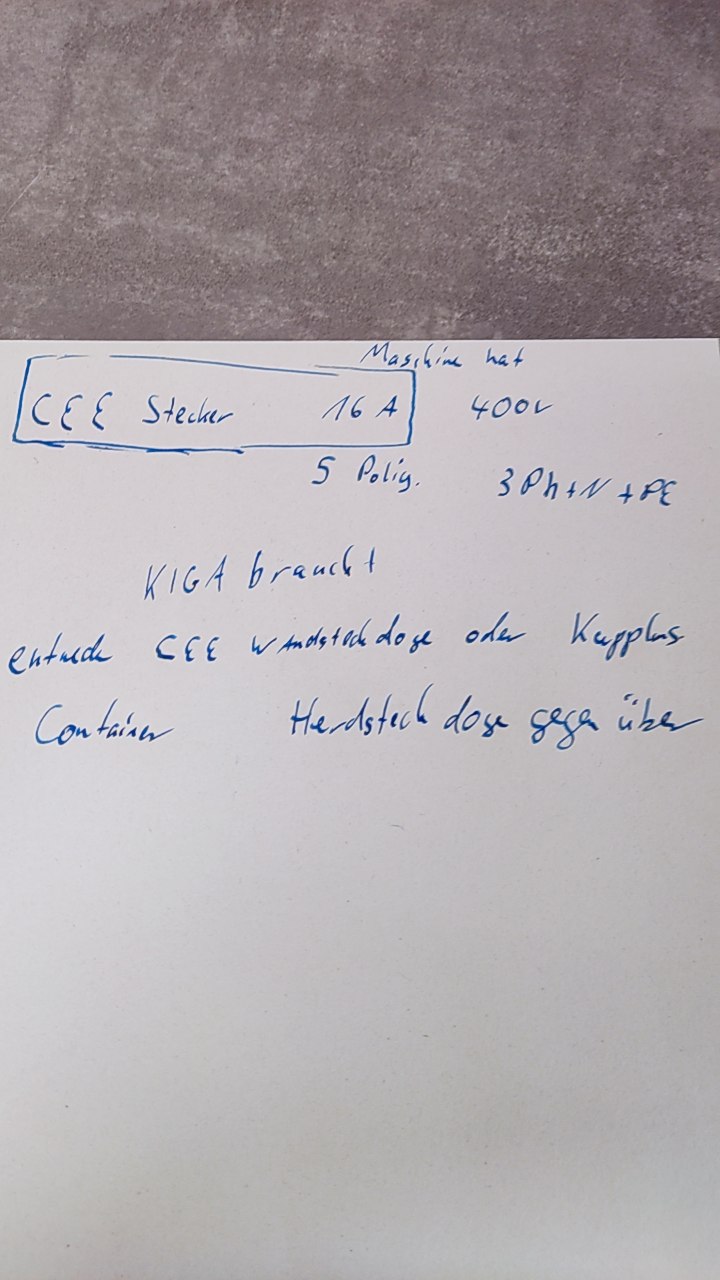 Maschine hat
CEE Stecker 16 A 400V
5 Polig. 3Ph+N+PE
KIGA braucht
entweder CEE Wandsteckdose oder Kupplung
Container Herdsteckdose gegenüber